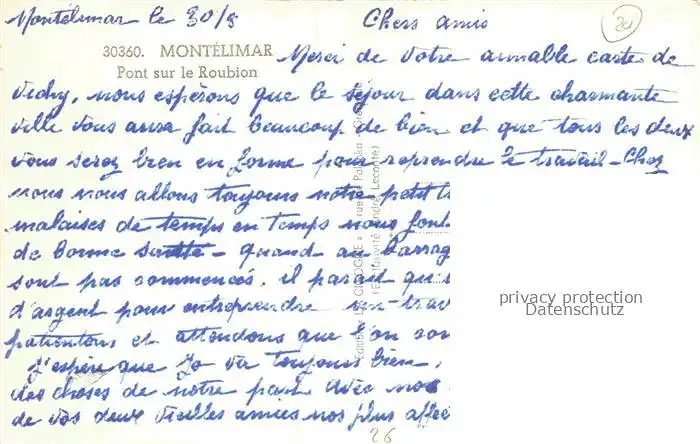 Montélimar le 30/8
Chers amis
20
30360. MONTÉLIMAR
Pont sur le Roubion
Merci de votre aimable carte de
Vichy, nous espérons que le séjour dans cette charmante
ville vous aura fait beaucoup de bien et que tous les deux
vous serez bien en forme pour reprendre le travail - Chez
nous nous allons toujours notre petit
malaises de temps en temps nous font
de bonne santé - quand au barrag
sont pas commencés, il parait qu'
d'argent pour entreprendre trav
patientons et attendons que l'on
J'espère que Jo va toujours bien,
des choses de notre part avec nos
de vos deux vieilles amies nos plus affec
Editions LA CIGOGNE
(Exclusivité André Lecomte)
privacy protection
Datenschutz
26